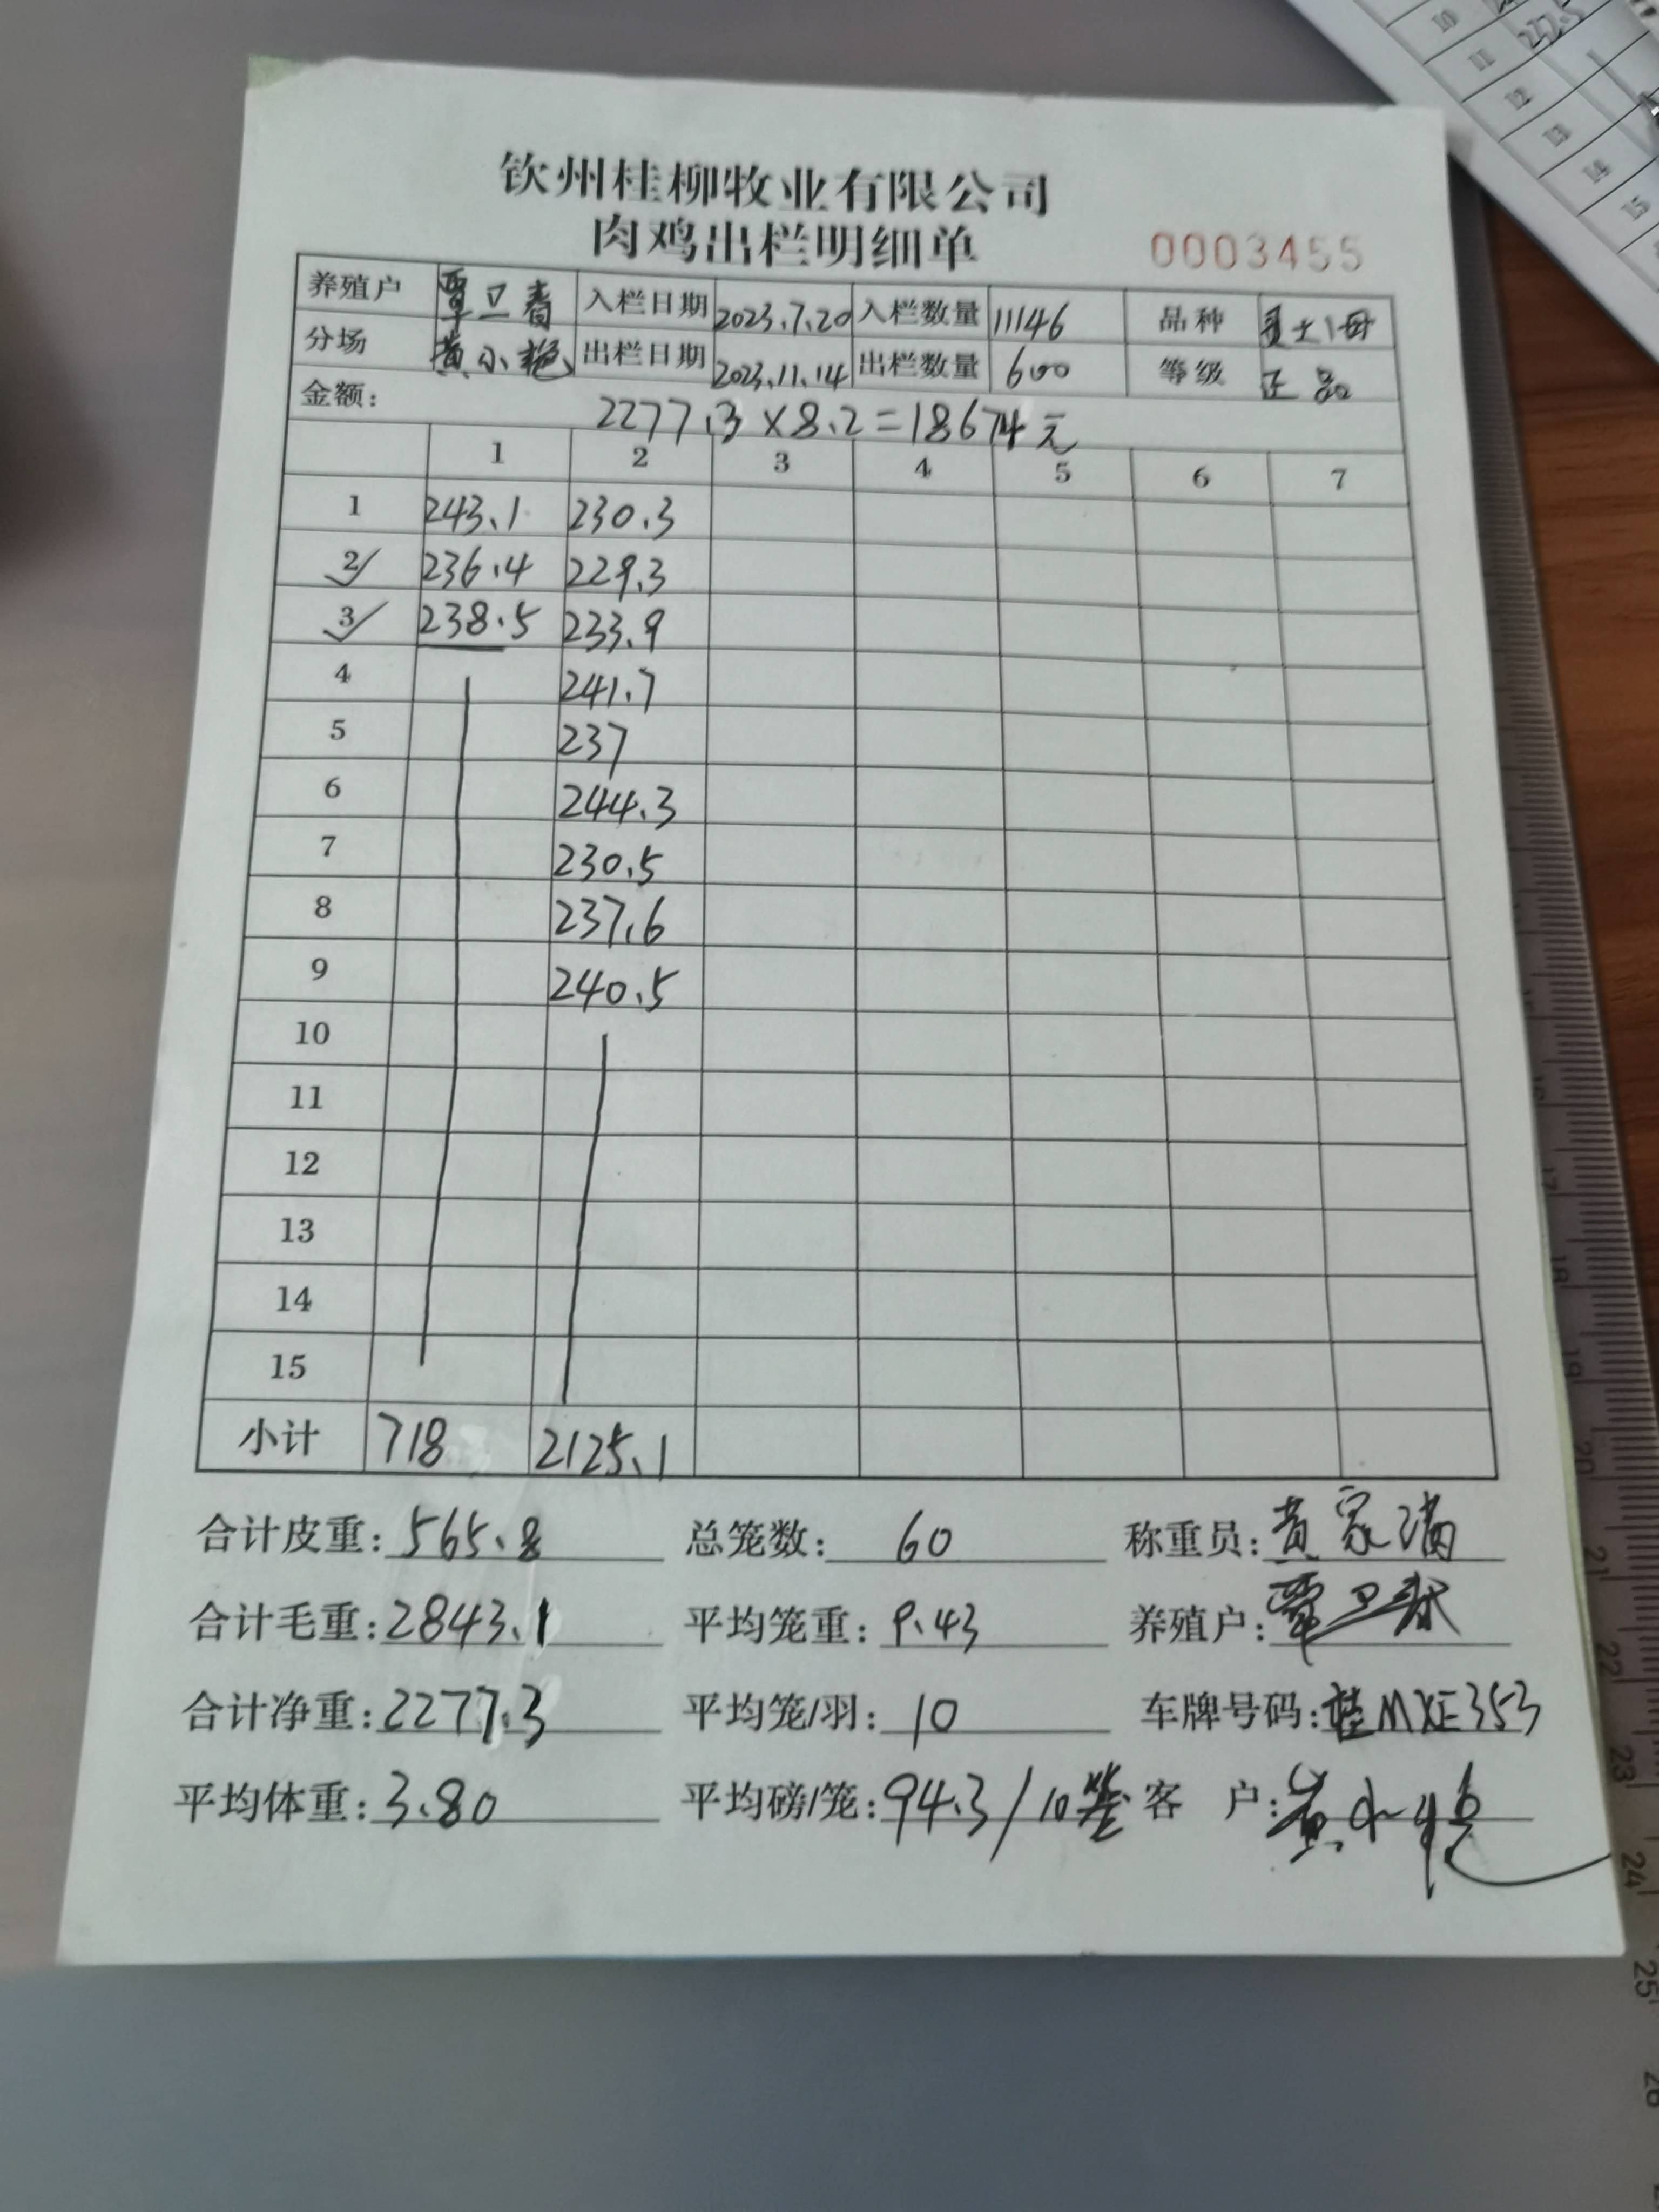 钦州桂柳牧业有限公司
肉鸡出栏明细单
0003455
养殖户 覃卫春 入栏日期 2023.7.20 入栏数量 11146 品种
分场 黄小艳 出栏日期 2023.11.14 出栏数量 600 等级 正品
金额: 2277.3×8.2=18674元
1 2 3 4 5 6 7
1 243.1 230.3
2 236.4 229.3
3 238.5 233.9
4 241.7
5 237
6 244.3
7 230.5
8 237.6
9 240.5
10
11
12
13
14
15
小计 718 2125.1
合计皮重: 565.8 总笼数: 60 称重员: 黄家满
合计毛重: 2843.1 平均笼重: 9.43 养殖户: 覃卫春
合计净重: 2277.3 平均笼/羽: 10 车牌号码: 桂MXE353
平均体重: 3.80 平均磅/笼: 94.3/10笼 客 户: 黄小艳
10 11 12 13 14 15
17 18 19 20 21 22 23 24 25 26